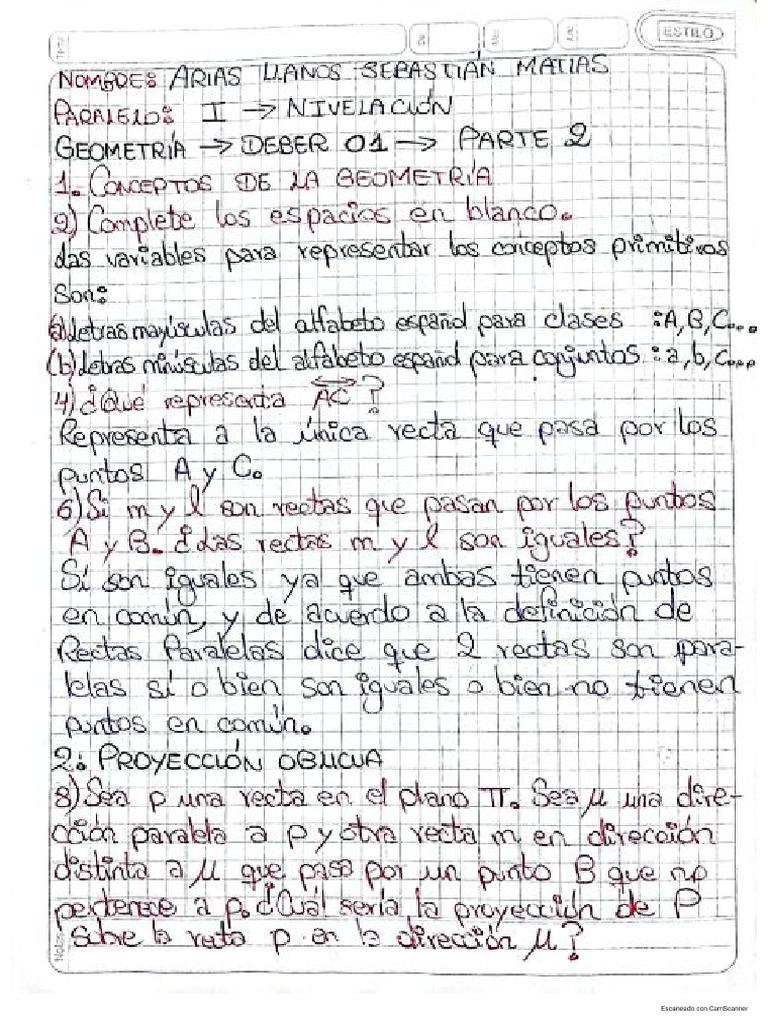 ESTILO
NOMBRE: ARIAS LLANOS SEBASTIÁN MATIAS
PARALELO: I → NIVELACIÓN
GEOMETRÍA → DEBER 01 → PARTE 2
1. CONCEPTOS DE LA GEOMETRÍA
2) Complete los espacios en blanco.
Las variables para representar los conceptos primitivos
Son:
(a) Letras mayúsculas del alfabeto español para clases : A, B, C...
(b) Letras minúsculas del alfabeto español para conjuntos : a, b, c...
4) ¿Qué representa AC ?
Representa a la única recta que pasa por los
puntos A y C.
6) Si m y l son rectas que pasan por los puntos
A y B. ¿Las rectas m y l son iguales?
Si son iguales ya que ambas tienen puntos
en común, y de acuerdo a la definición de
Rectas Paralelas dice que 2 rectas son para-
lelas si o bien son iguales o bien no tienen
puntos en común.
2: PROYECCIÓN OBLICUA
8) Sea p una recta en el plano π. Sea μ una dire-
cción paralela a p y otra recta m en dirección
distinta a μ que pasa por un punto B que no
pertenece a p. ¿Cuál sería la proyección de P
sobre la recta p en la dirección μ?
Notas
Escaneado con CamScanner